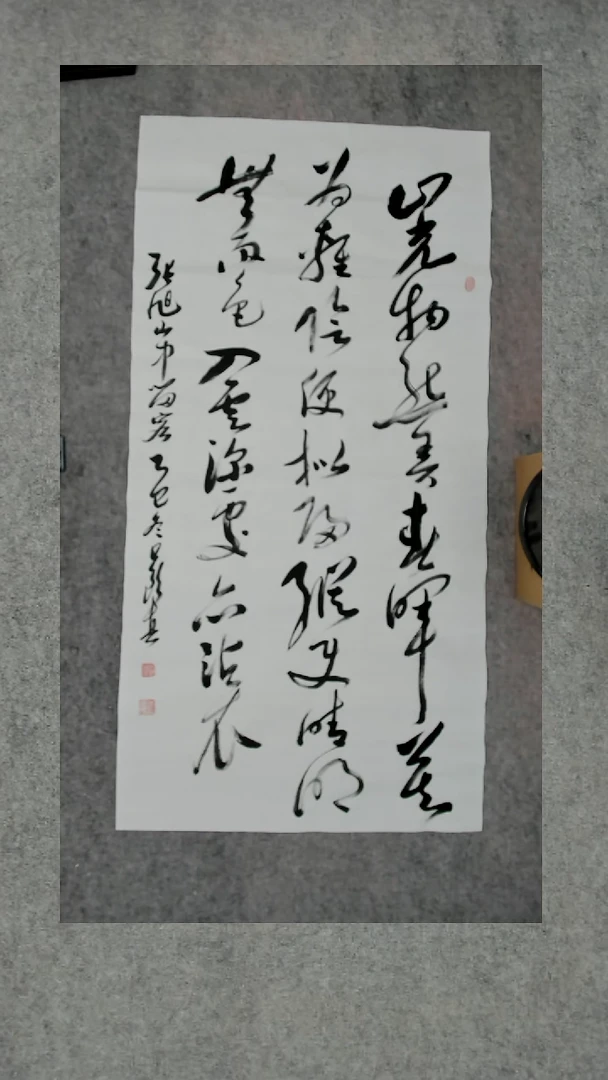 山光物態弄春暉莫
为輕陰便拟歸縱使晴明
無雨色入雲深處亦沾衣
張旭山中留客乙巳冬